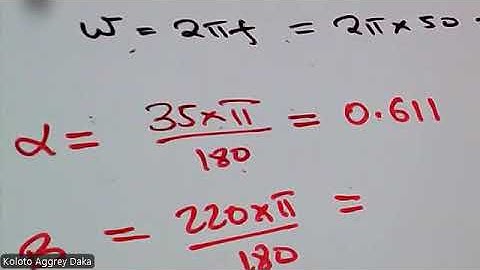 W = 2πf = 2π×50
α = 35×π/180 = 0.611
β = 220×π/180 =
Koloto Aggrey Daka